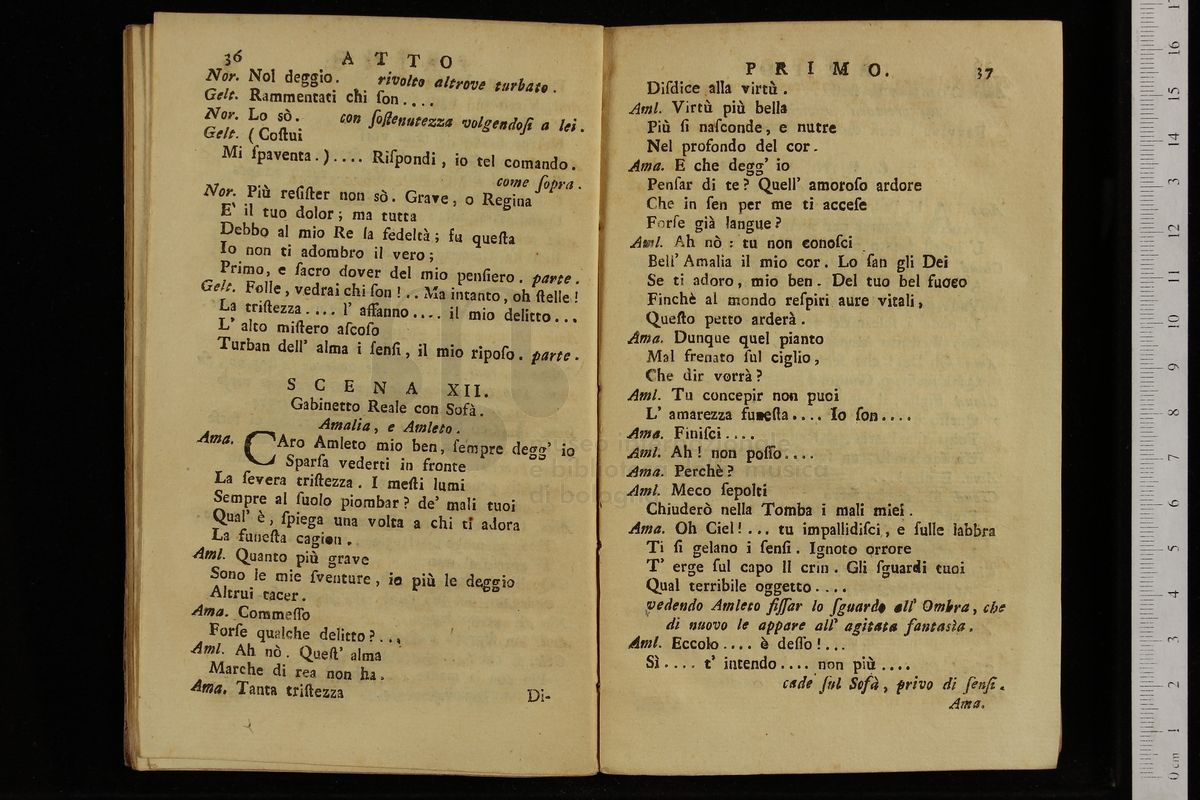 36 A T T O
Nor. Nol deggio. rivolto altrove turbato.
Gelt. Rammentati chi ſon....
Nor. Lo sò. con ſoſtenutezza volgendoſi a lei.
Gelt. (Coſtui
Mi ſpaventa.).... Riſpondi, io tel comando.
come ſopra.
Nor. Più reſiſter non sò. Grave, o Regina
E' il tuo dolor; ma tutta
Debbo al mio Re la fedeltà; fu queſta
Io non ti adombro il vero;
Primo, e ſacro dover del mio penſiero. parte.
Gelt. Folle, vedrai chi ſon!.. Ma intanto, oh ſtelle!
La triſtezza.... l' affanno.... il mio delitto...
L' alto miſtero aſcoſo
Turban dell' alma i ſenſi, il mio ripoſo. parte.
S C E N A XII.
Gabinetto Reale con Sofà.
Amalia, e Amleto.
Ama. CAro Amleto mio ben, ſempre degg' io
Sparſa vederti in fronte
La ſevera triſtezza. I meſti lumi
Sempre al ſuolo piombar? de' mali tuoi
Qual' è, ſpiega una volta a chi ti adora
La funeſta cagion.
Aml. Quanto più grave
Sono le mie ſventure, io più le deggio
Altrui tacer.
Ama. Commeſſo
Forſe qualche delitto?...
Aml. Ah nò. Queſt' alma
Marche di rea non ha.
Ama. Tanta triſtezza
Di-
P R I M O. 37
Diſdice alla virtù.
Aml. Virtù più bella
Più ſi naſconde, e nutre
Nel profondo del cor.
Ama. E che degg' io
Penſar di te? Quell' amoroſo ardore
Che in ſen per me ti acceſe
Forſe già langue?
Aml. Ah nò: tu non conoſci
Bell' Amalia il mio cor. Lo ſan gli Dei
Se ti adoro, mio ben. Del tuo bel fuoco
Finchè al mondo reſpiri aure vitali,
Queſto petto arderà.
Ama. Dunque quel pianto
Mal frenato ſul ciglio,
Che dir vorrà?
Aml. Tu concepir non puoi
L' amarezza funeſta.... Io ſon....
Ama. Finiſci....
Aml. Ah! non poſſo....
Ama. Perchè?
Aml. Meco ſepolti
Chiuderò nella Tomba i mali miei.
Ama. Oh Ciel!... tu impallidiſci, e ſulle labbra
Ti ſi gelano i ſenſi. Ignoto orrore
T' erge ſul capo Il crin. Gli ſguardi tuoi
Qual terribile oggetto....
vedendo Amleto fiſſar lo ſguardo all' Ombra, che
di nuovo le appare all' agitata fantasìa.
Aml. Eccolo.... è deſſo!...
Sì.... t' intendo.... non più....
cade ſul Sofà, privo di ſenſi.
Ama.
museo internazionale
e biblioteca della musica
di bologna
0 cm 1 2 3 4 5 6 7 8 9 10 11 12 13 14 15 16 17